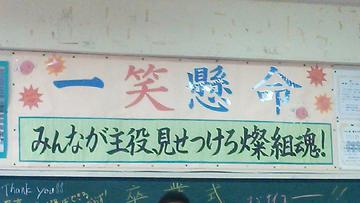 一笑懸命
みんなが主役見せつけろ燦組魂!
Thank you!!
卒業式